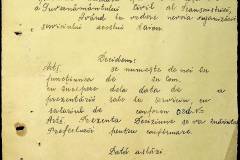 a Guvernământului Civil al Transnistriei,
Având în vedere nevoia organizării
serviciului acestui Raion
Decidem:
Art. se numește de noi în
funcțiunea de în Com.
cu începere dela data de a
prezentării sale la serviciu cu
salariul de conform Ord. Nr.
Art. Prezenta Deciziune se va înainta
Prefecturii pentru confirmare.
Dată astăzi